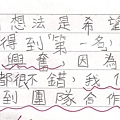 想法是希望
得到「第一名」
興奮，因為
都很不錯，我們
到團隊合作